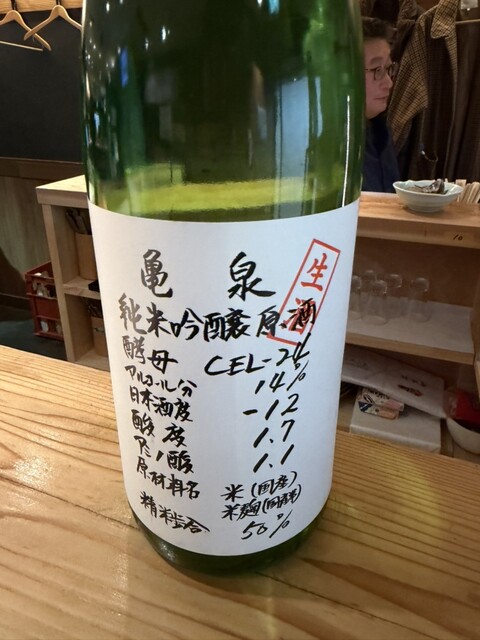 亀泉
生酒
純米吟醸原酒
酵母 CEL-24
アルコール分 14%
日本酒度 -12
酸度 1.7
アミノ酸 1.1
原材料名 米(国産)
米麹(国産米)
精米歩合 50%